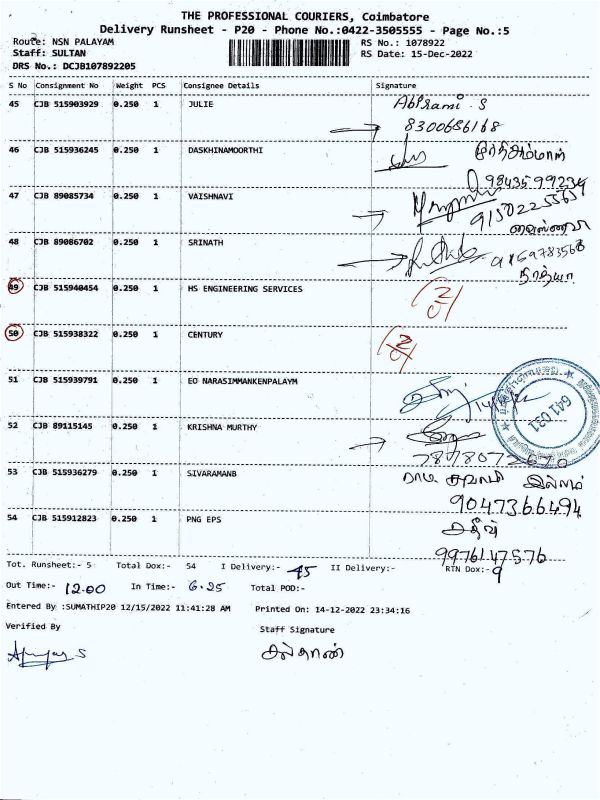 THE PROFESSIONAL COURIERS, Coimbatore
Delivery Runsheet - P20 - Phone No.:0422-3505555 - Page No.:5
Route: NSN PALAYAM RS No.: 1078922
Staff: SULTAN RS Date: 15-Dec-2022
DRS No.: DCJB107892205
S No Consignment No Weight PCS Consignee Details Signature
45 CJB 515903929 0.250 1 JULIE Abirami . S
8300686168
46 CJB 515936245 0.250 1 DASKHINAMOORTHI
9843599234
47 CJB 89085734 0.250 1 VAISHNAVI
9150225565
48 CJB 89086702 0.250 1 SRINATH
9159783568
49 CJB 515940454 0.250 1 HS ENGINEERING SERVICES
50 CJB 515938322 0.250 1 CENTURY
51 CJB 515939791 0.250 1 EO NARASIMMANKENPALAYM
641 031
52 CJB 89115145 0.250 1 KRISHNA MURTHY
53 CJB 515936279 0.250 1 SIVARAMANB ராம சுவாமி இல்லம்
9047366494
54 CJB 515912823 0.250 1 PNG EPS
9976147576
Tot. Runsheet:- 5 Total Dox:- 54 I Delivery:- 45 II Delivery:- RTN Dox:- 9
Out Time:- 12.00 In Time:- 6.25 Total POD:-
Entered By :SUMATHIP20 12/15/2022 11:41:28 AM Printed On: 14-12-2022 23:34:16
Verified By Staff Signature
சுல்தான்